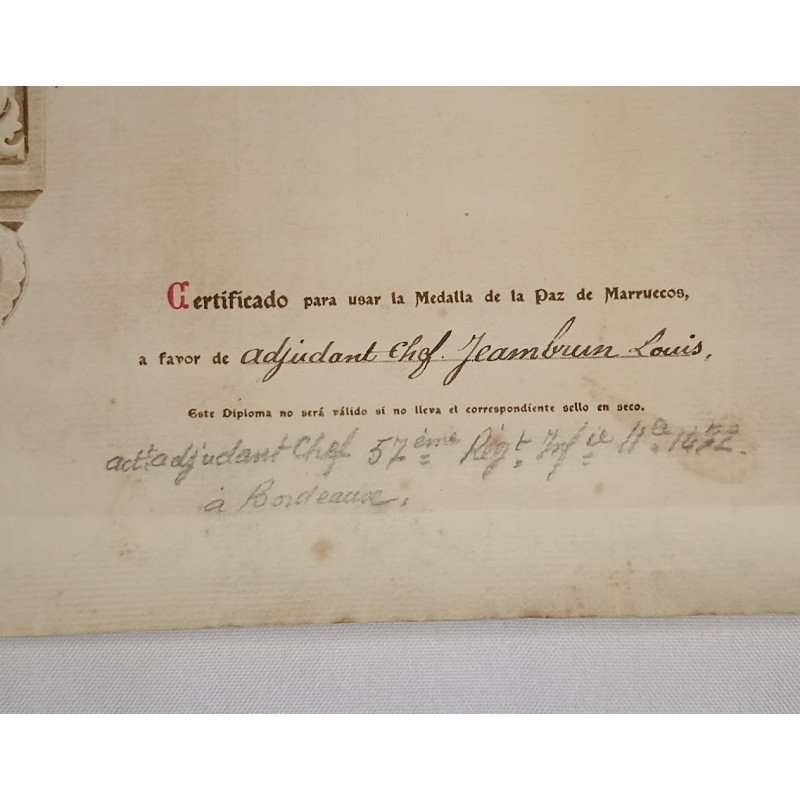 Certificado para usar la Medalla de la Paz de Marruecos,
a favor de adjudant Chef. Jeambrun Louis,
Este Diploma no será válido si no lleva el correspondiente sello en seco.
actt adjudant Chef 57ème Régt. Infie Mle 1472.
à Bordeaux.